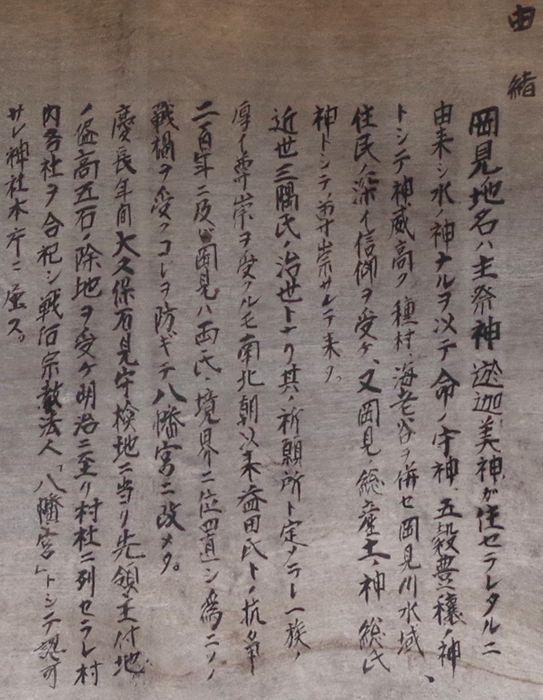 由緒
岡見地名ハ主祭神 迦美神が住セラレタルニ
由来シ水ノ神ナルヲ以テ命ノ守神、五穀豊穣ノ神
トシテ神威高ク種村、海老谷ヲ併セ岡見川水域、
住民ノ深イ信仰ヲ受ケ、又岡見総産土ノ神 総氏
神トシテ尊崇サレテ来タ。
近世三隅氏ノ治世トナリ其ノ祈願所ト定メラレ一族ノ
厚イ尊崇ヲ受クルモ南北朝以来益田氏トノ抗争
二百年ニ及ビ岡見ハ両氏ノ境界ニ位置シ為ニソノ
戦禍ヲ受クコレヲ防ギテ八幡宮ニ改メタ。
慶長年間大久保石見守検地ニ当リ先領主付地
ノ儘高五石ノ除地ヲ受ケ明治ニ至リ村社ニ列セラレ村
内各社ヲ合祀シ戦后宗教法人「八幡宮」トシテ認可
サレ神社本庁ニ座ス。